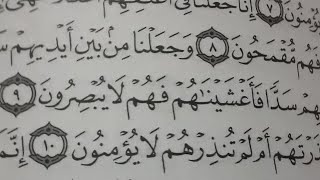 يُؤْمِنُونَ ٧ إِنَّا جَعَلْنَا فِىٓ أَعْنَٰقِهِمْ
فَهُم مُّقْمَحُونَ ٨ وَجَعَلْنَا مِنۢ بَيْنِ أَيْدِيهِمْ
سَدًّا فَأَغْشَيْنَٰهُمْ فَهُمْ لَا يُبْصِرُونَ ٩
أَمْ لَمْ تُنذِرْهُمْ لَا يُؤْمِنُونَ ١٠ إِنَّمَا